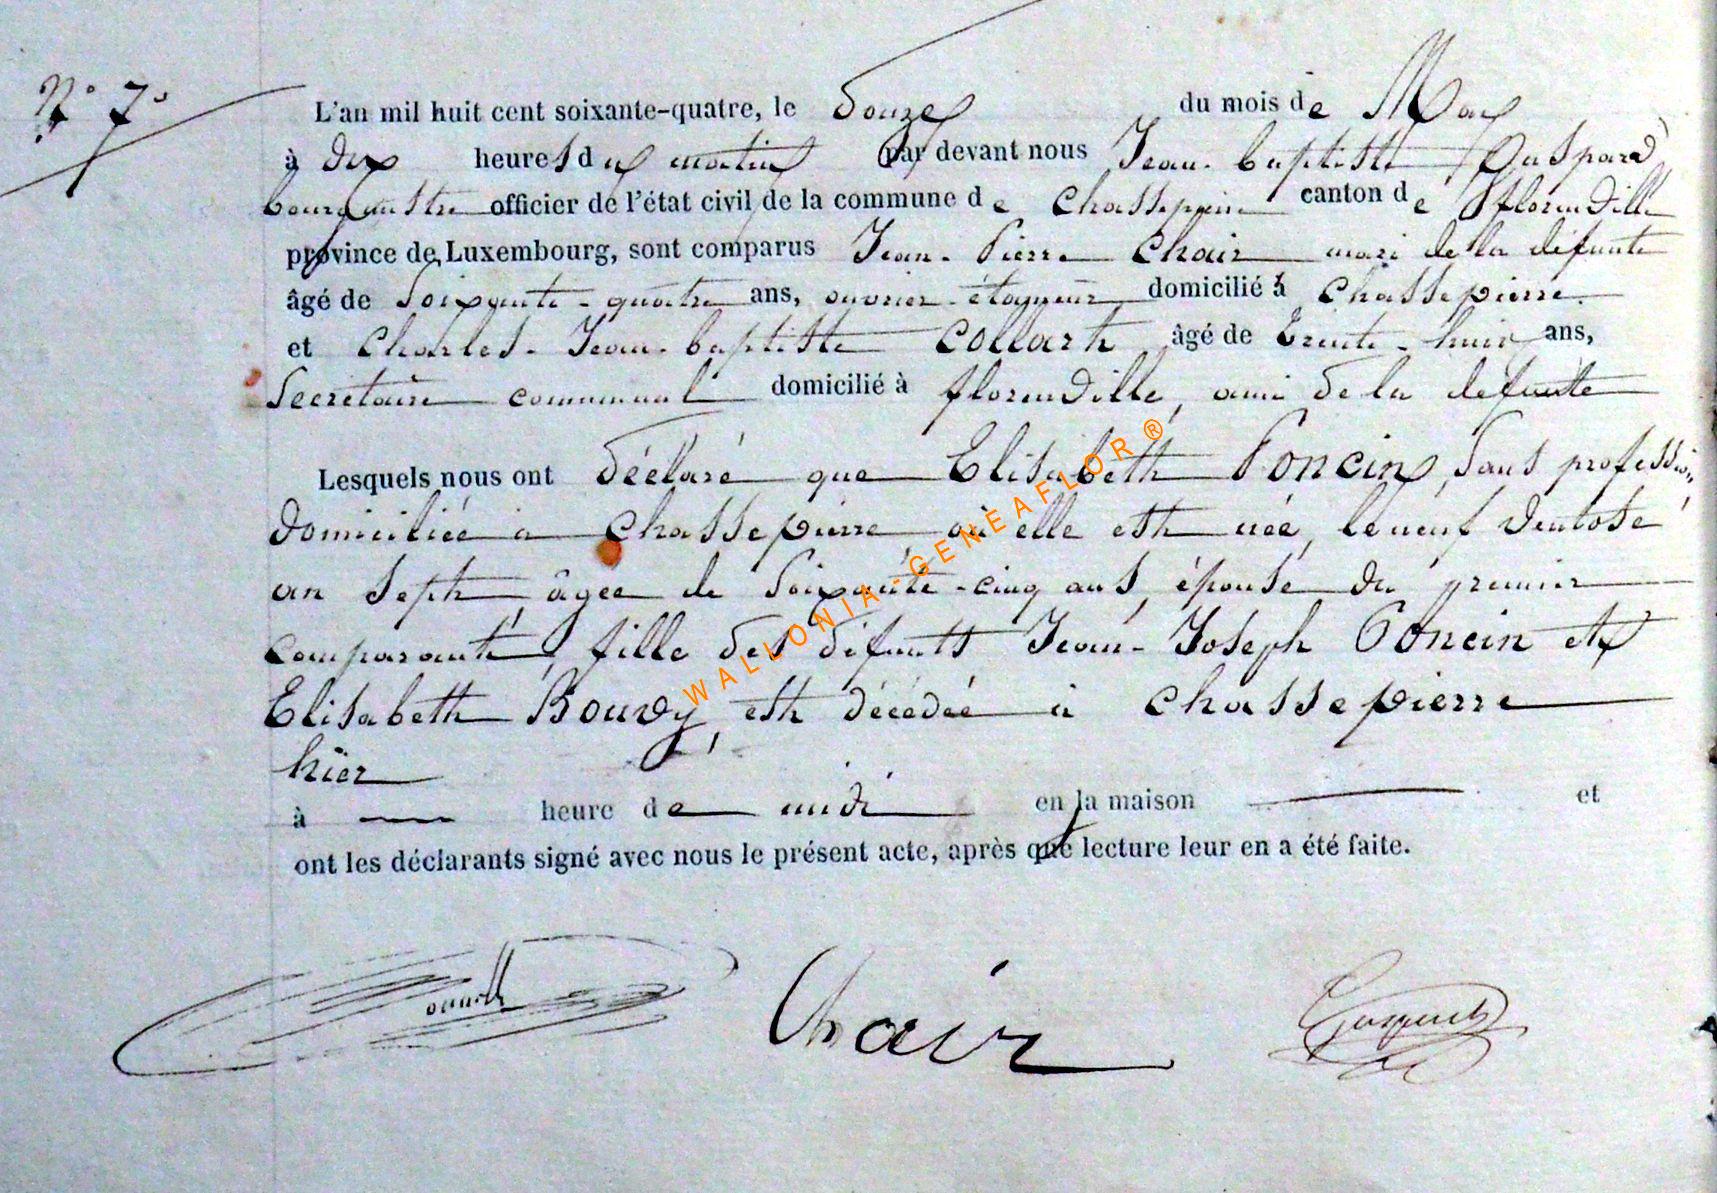 N° 7.
L'an mil huit cent soixante-quatre, le douze du mois de Mai
à dix heures du matin par devant nous Jean-baptiste Gaspard
bourgmestre officier de l'état civil de la commune de Chassepierre canton de florenville
province de Luxembourg, sont comparus Jean-Pierre Chair mari de la défunte
âgé de Soixante-quatre ans, ouvrier domicilié à Chassepierre.
et Charles-Jean-baptiste Collart âgé de trente-huit ans,
Secrétaire communal domicilié à florenville, ami de la defunte
Lesquels nous ont déclaré que Elisabeth Poncin, Sans profession,
domiciliée à Chassepierre où elle est née, le neuf Ventose
an Sept, âgée de Soixante-cinq ans, épouse du premier
comparant, fille des défunts Jean-Joseph Poncin et
Elisabeth Bouvy, est décédée à Chassepierre
hier
à heure de midi en la maison et
ont les déclarants signé avec nous le présent acte, après que lecture leur en a été faite.
Chair Gaspard
WALLONIA-GENEAFLOR®